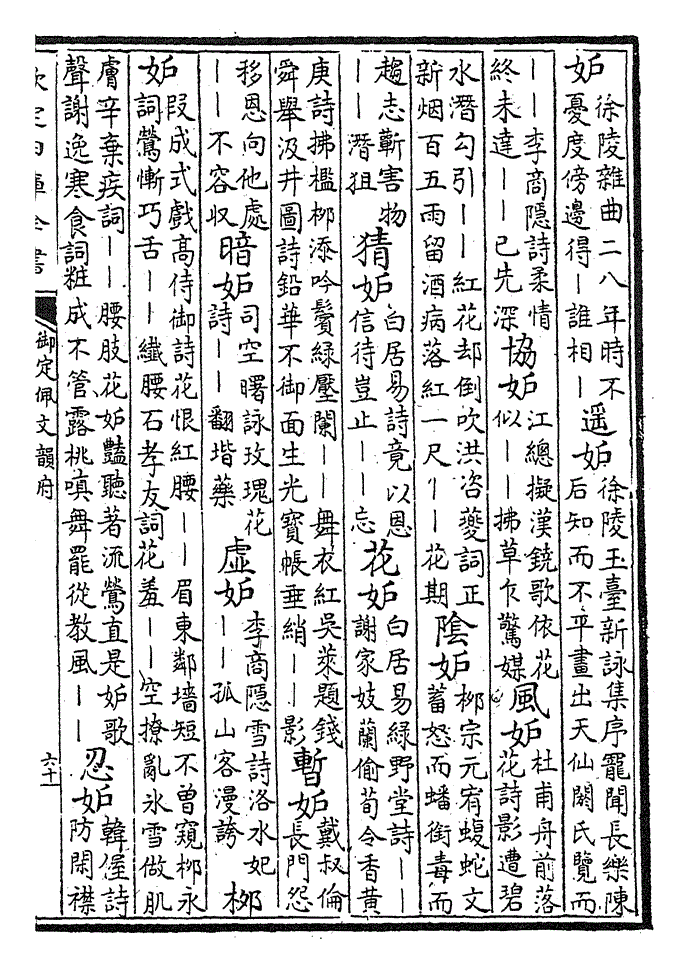 妬徐陵雜曲二八年時不憂度傍邊得丨誰相丨遥妬徐陵玉臺新詠集序寵聞長樂陳后知而不平畫出天仙閼氏覽而
丨丨李商隱詩柔情終未達丨丨已先深協妬江總擬漢鐃歌依花似丨丨拂草乍驚媒風妬杜甫舟前落花詩影遭碧
水潛勾引丨丨紅花却倒吹洪咨夔詞正新烟百五雨留酒病落紅一尺丨丨花期陰妬栁宗元宥蝮蛇文蓄怒而蟠銜毒而
趨志蘄害物丨丨潛狙猜妬白居易詩竟以恩信待豈止丨丨忘花妬白居易綠野堂詩丨丨謝家妓蘭偷荀令香黄
庚詩拂檻栁添吟鬢綠壓闌丨丨舞衣紅吳萊題錢舜舉汲井圖詩鉛華不御面生光寳帳垂綃丨丨影暫妬戴叔倫長門怨
移恩向他處丨丨不容収暗妬司空曙詠玫瑰花詩丨丨翻堦藥虛妬李商隱雪詩洛水妃丨丨孤山客漫誇栁
妬段成式戲高侍御詩花恨紅腰丨丨眉東鄰墻短不曾窺栁永詞鶯慚巧舌丨丨纖腰石孝友詞花羞丨丨空撩亂氷雪做肌
膚辛棄疾詞丨丨腰肢花妬豔聽著流鶯直是妬歌聲謝逸寒食詞粧成不管露桃嗔舞罷從教風丨丨忍妬韓偓詩防閑襟
欽定四庫全書
御定佩文韻府
六十